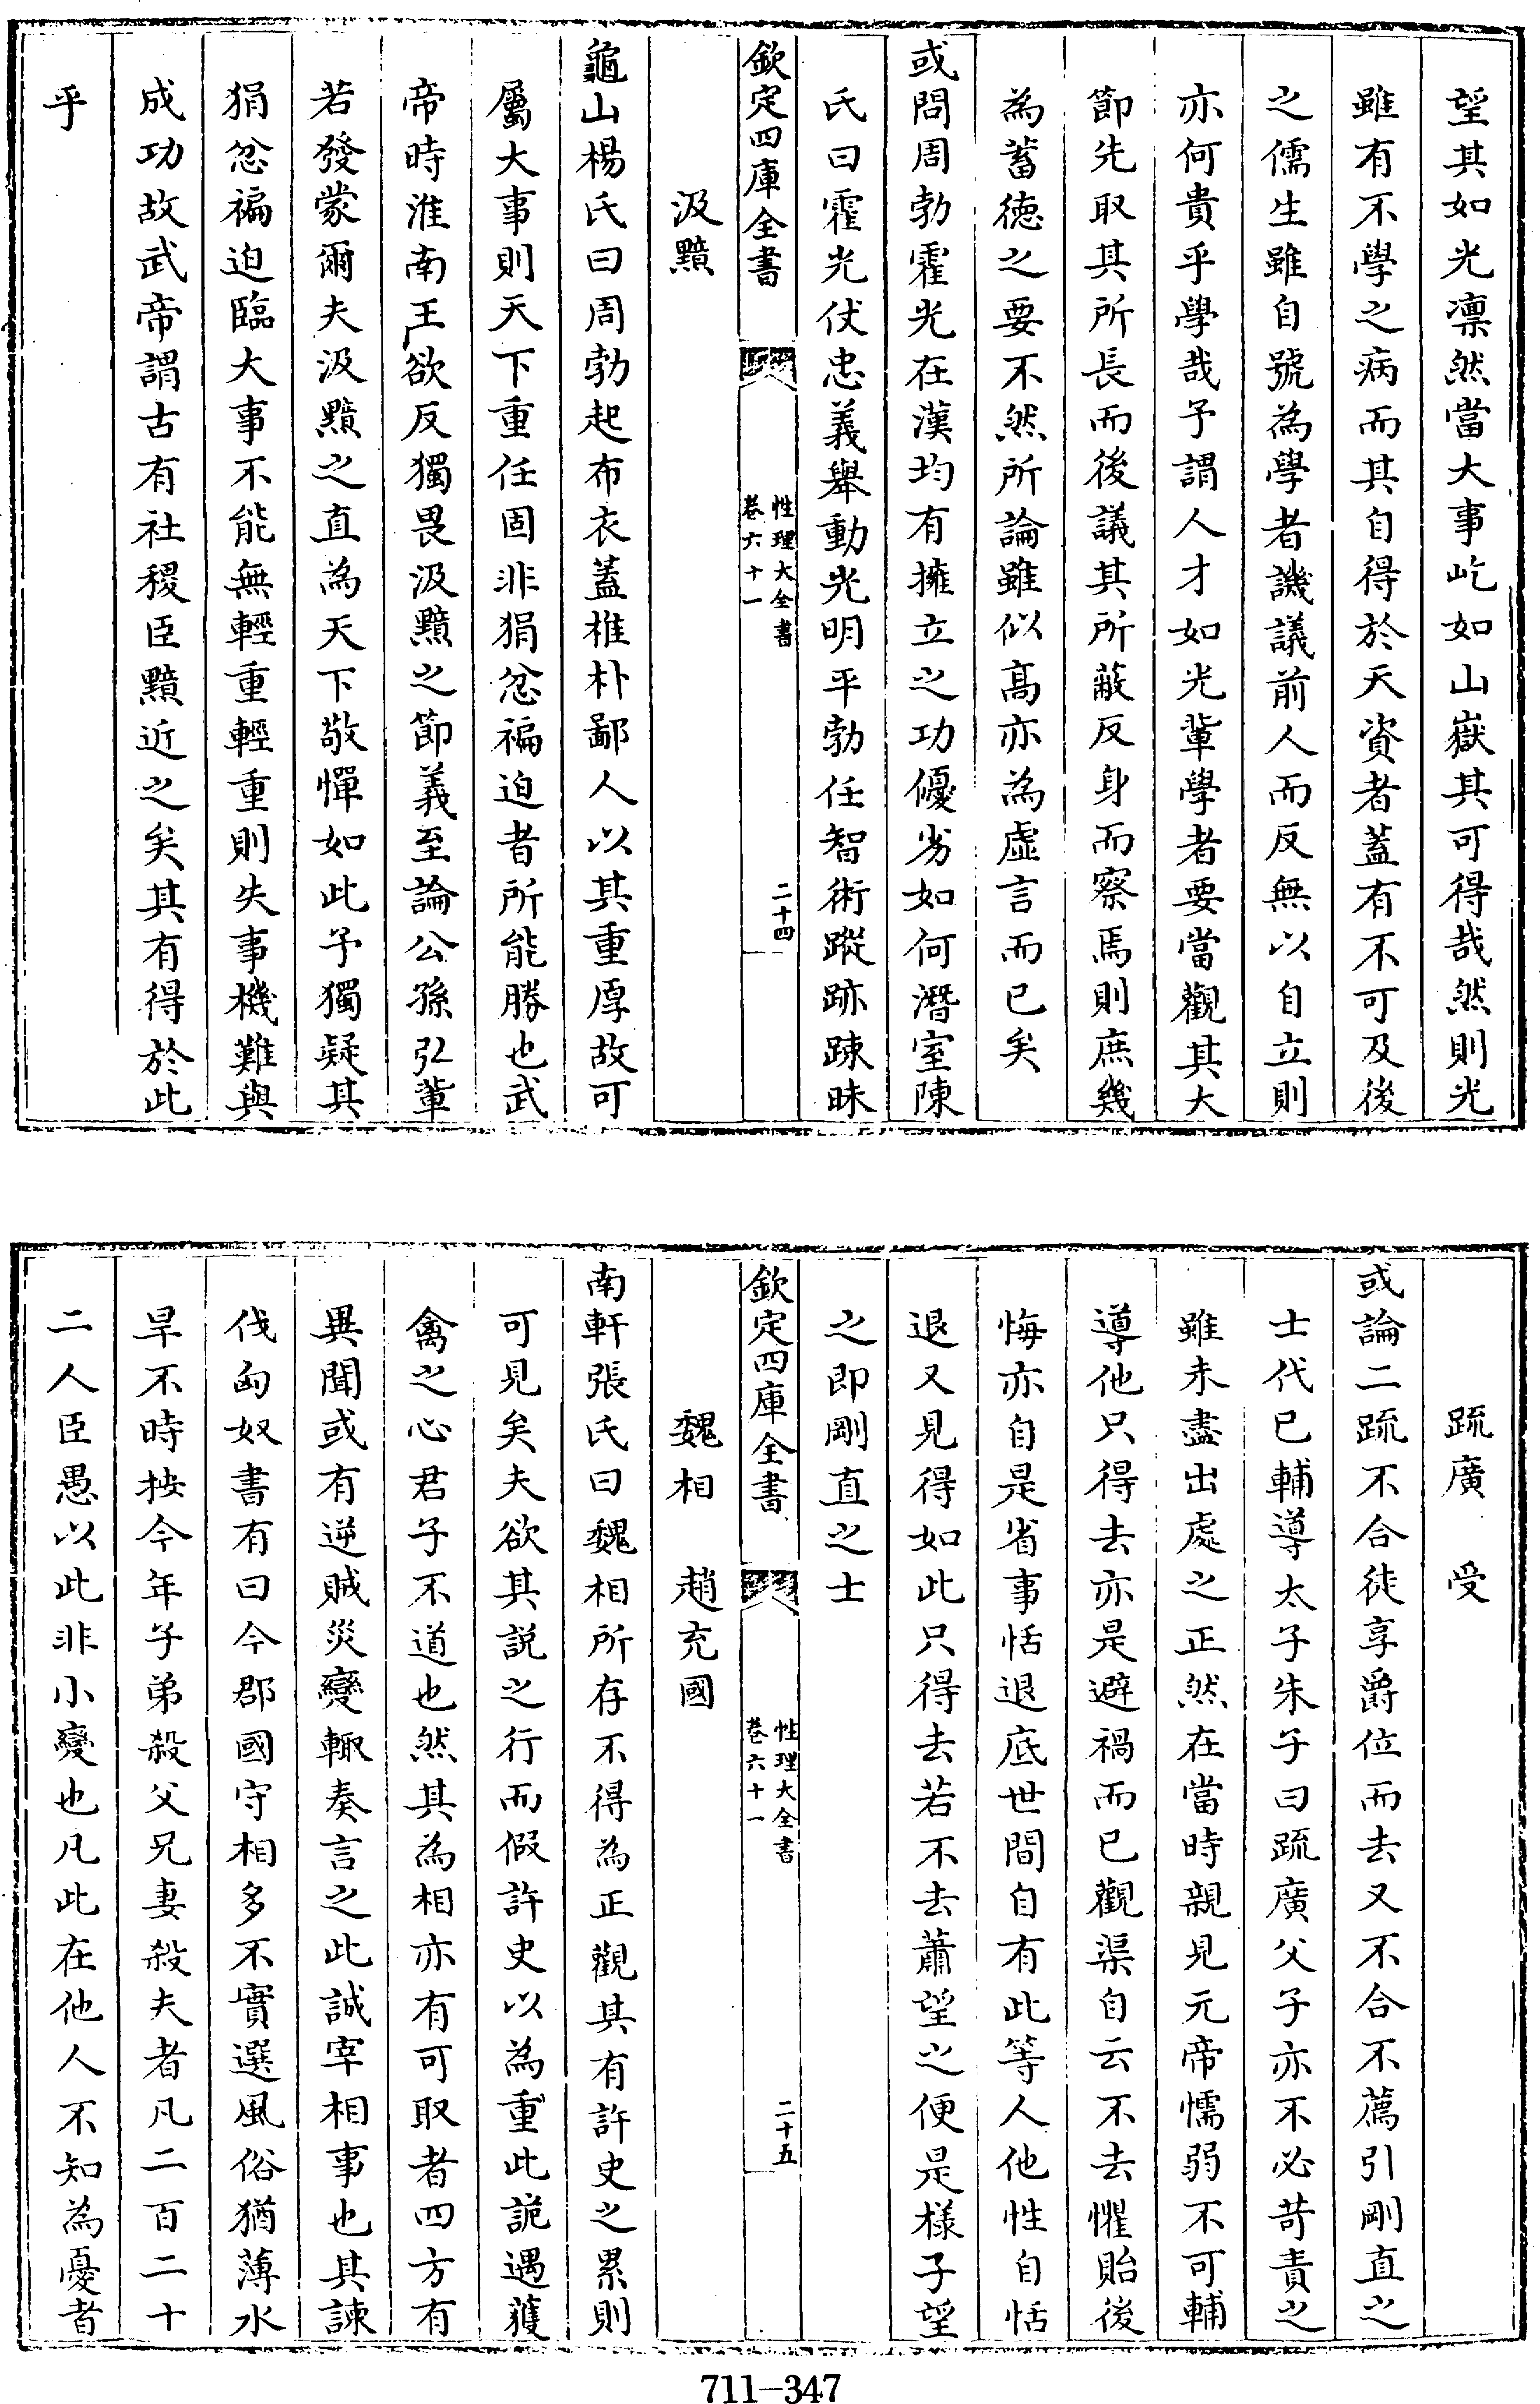 望其如光凛然當大事屹如山嶽其可得哉然則光
雖有不學之病而其自得於天資者蓋有不可及後
之儒生雖自號為學者譏議前人而反無以自立則
亦何貴乎學哉予謂人才如光輩學者要當觀其大
節先取其所長而後議其所蔽反身而察焉則庶幾
為蓄德之要不然所論雖似髙亦為虚言而已矣
或問周勃霍光在漢均有擁立之功優劣如何潛室陳
氏曰霍光仗忠義舉動光明平勃任智術蹤跡踈昧
欽定四庫全書
性理大全書
卷六十一
二十四
汲黯
龜山楊氏曰周勃起布衣蓋椎朴鄙人以其重厚故可
屬大事則天下重任固非狷忿褊迫者所能勝也武
帝時淮南王欲反獨畏汲黯之節義至論公孫弘輩
若發蒙爾夫汲黯之直為天下敬憚如此予獨疑其
狷忿褊迫臨大事不能無輕重輕重則失事機難與
成功故武帝謂古有社稷臣黯近之矣其有得於此
乎
疏廣 受
或論二疏不合徒享爵位而去又不合不薦引剛直之
士代已輔導太子朱子曰疏廣父子亦不必苛責之
雖未盡出處之正然在當時親見元帝懦弱不可輔
導他只得去亦是避禍而已觀渠自云不去懼貽後
悔亦自是省事恬退底世間自有此等人他性自恬
退又見得如此只得去若不去蕭望之便是樣子望
之即剛直之士
欽定四庫全書
性理大全書
卷六十一
二十五
魏相 趙充國
南軒張氏曰魏相所存不得為正觀其有許史之累則
可見矣夫欲其説之行而假許史以為重此詭遇獲
禽之心君子不道也然其為相亦有可取者四方有
異聞或有逆賊災變輙奏言之此誠宰相事也其諫
伐匈奴書有曰今郡國守相多不實選風俗猶薄水
旱不時按今年子弟殺父兄妻殺夫者凡二百二十
二人臣愚以此非小變也凡此在他人不知為憂者
711-347